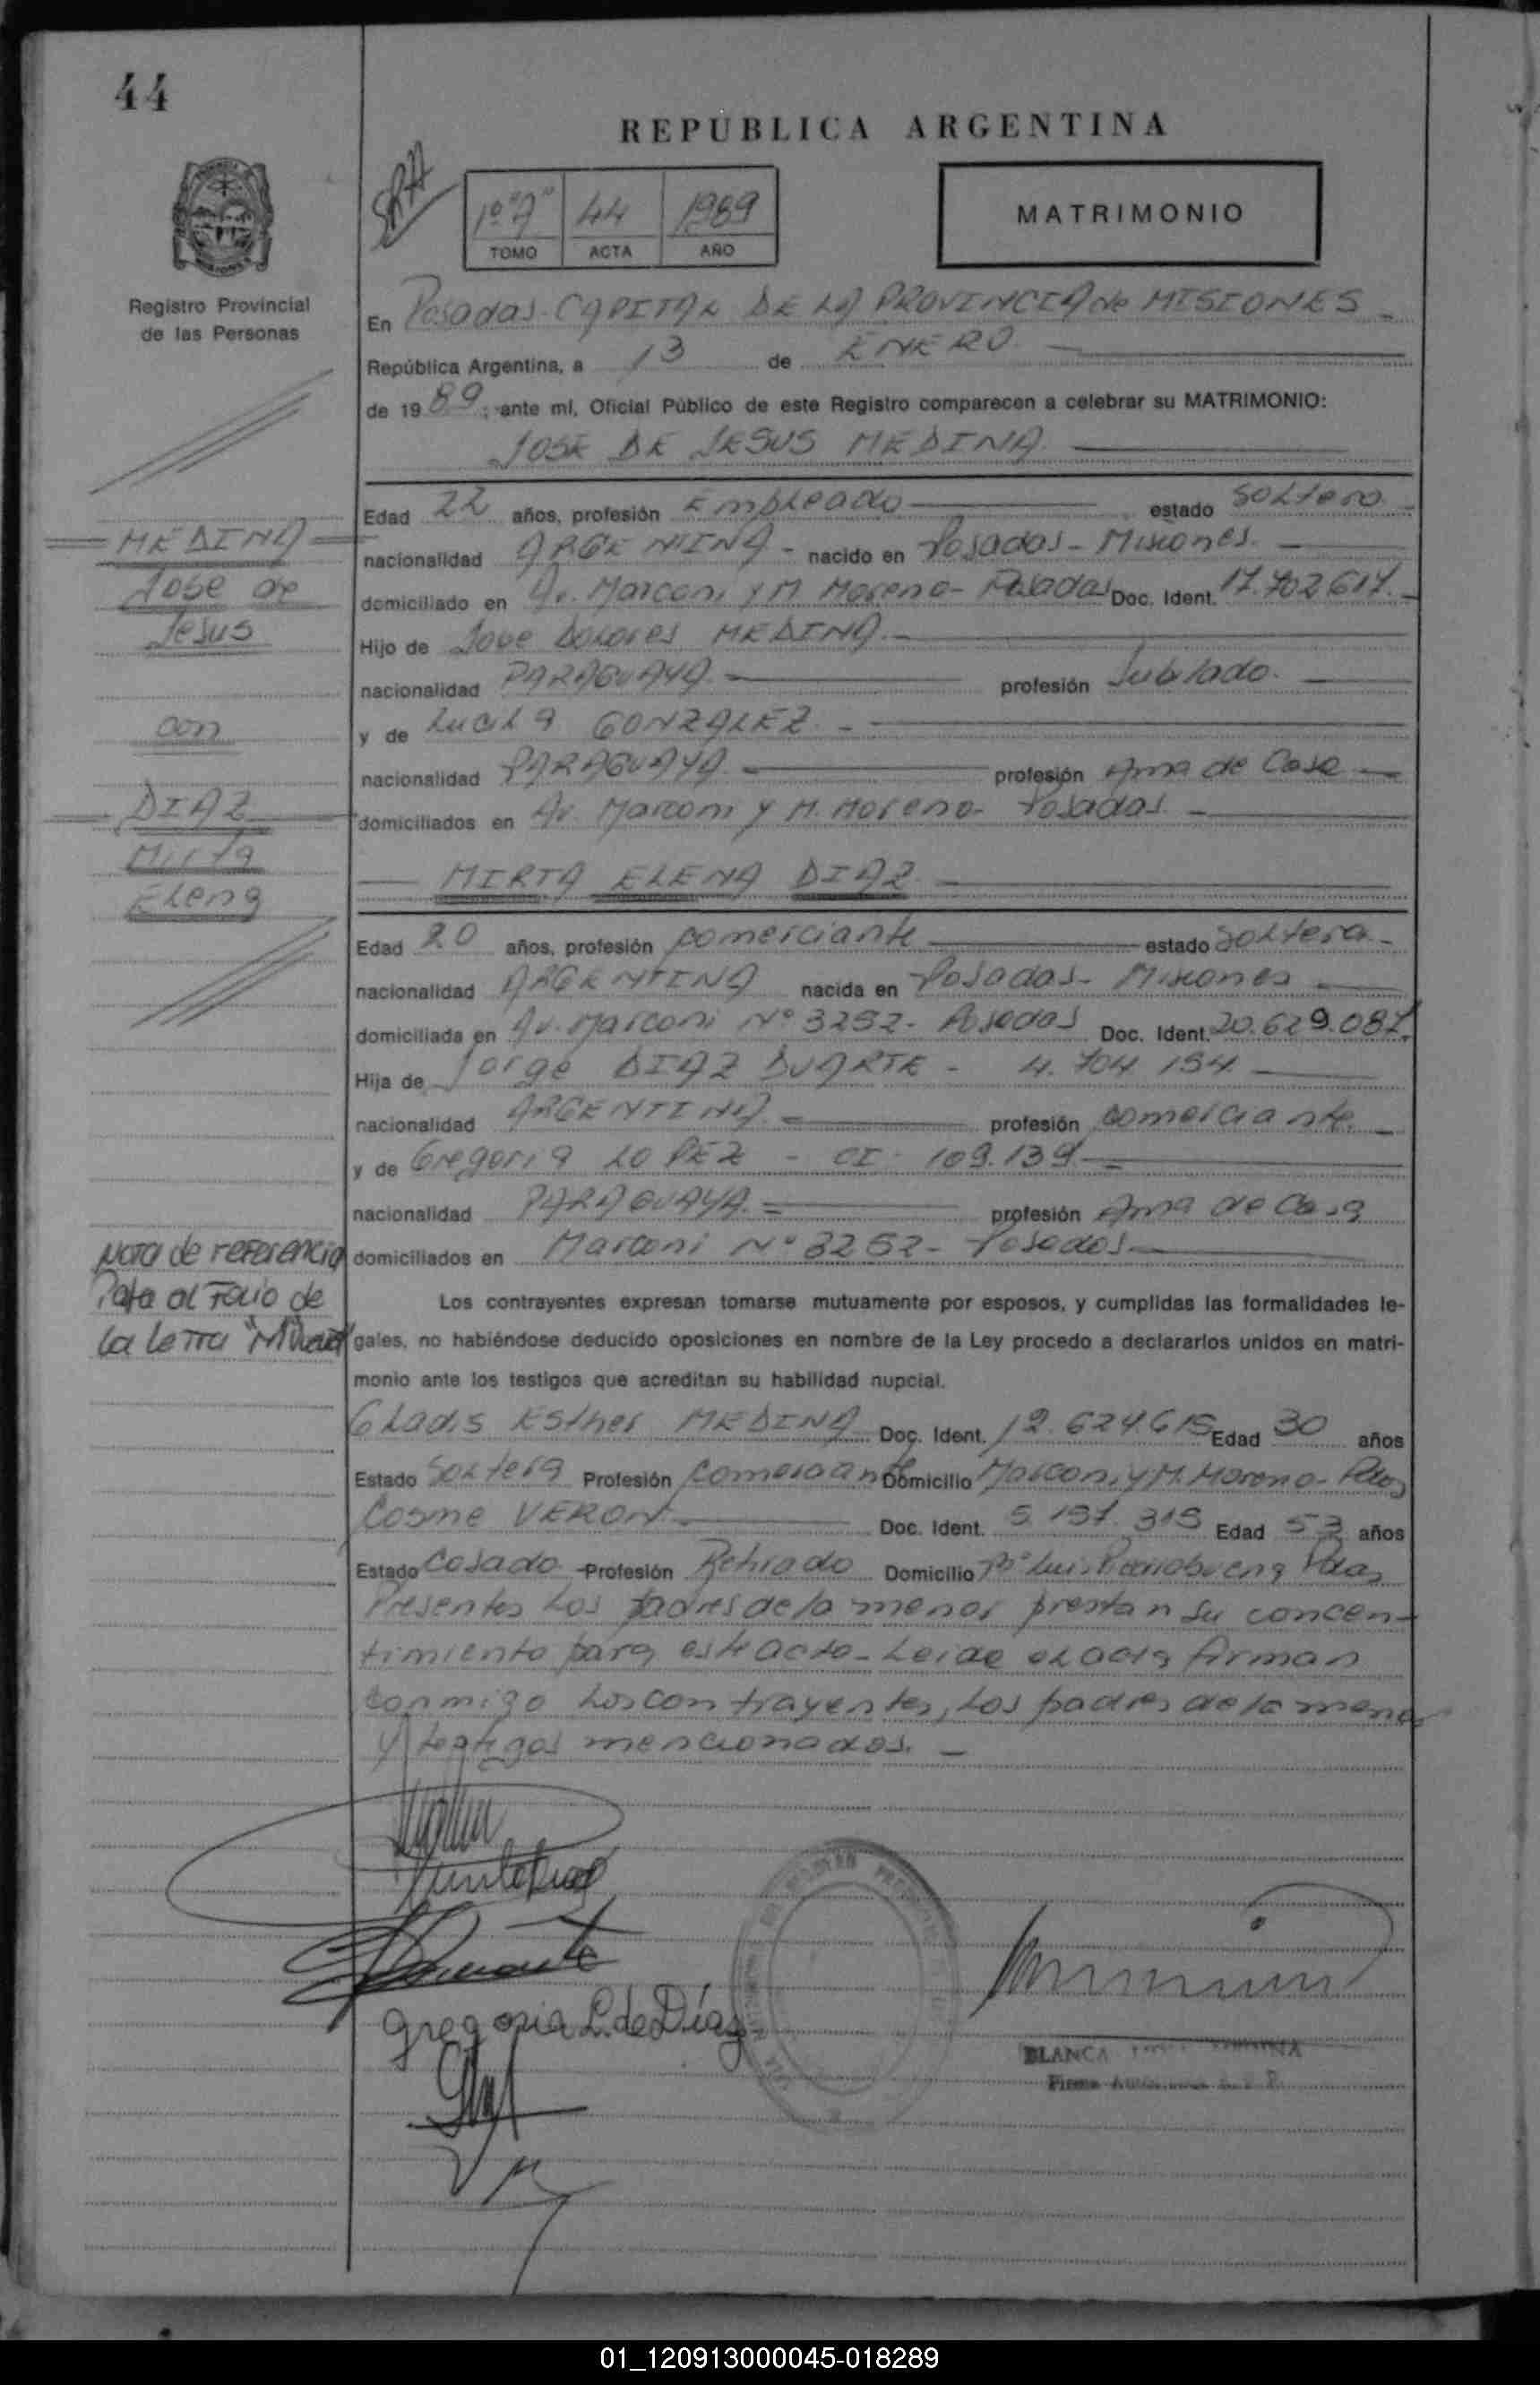 44
REPUBLICA ARGENTINA
1º "A" 44 1989
TOMO ACTA AÑO
MATRIMONIO
Registro Provincial
de las Personas
En Posadas CAPITAL DE LA PROVINCIA de MISIONES
República Argentina, a 13 de ENERO
de 19 89 ; ante mí, Oficial Público de este Registro comparecen a celebrar su MATRIMONIO:
JOSE DE JESUS MEDINA
Edad 22 años, profesión Empleado estado Soltero
MEDINA
nacionalidad ARGENTINA - nacido en Posadas - Misiones
Jose de
domiciliado en Av. Marconi y M. Moreno - Posadas Doc. Ident. 17.702.617.-
Jesus
Hijo de Jose Dolores MEDINA.-
nacionalidad PARAGUAYA.- profesión Jubilado.
con
y de Lucila GONZALEZ.-
nacionalidad PARAGUAYA.- profesión Ama de Casa
DIAZ
domiciliados en Av. Marconi y M. Moreno - Posadas.-
Mirta
MIRTA ELENA DIAZ
Elena
Edad 20 años, profesión comerciante estado Soltera.-
nacionalidad ARGENTINA nacida en Posadas - Misiones
domiciliada en Av. Marconi Nº 3252 - Posadas Doc. Ident. 20.629.087.
Hija de Jorge DIAZ DUARTE - 4.704.154.
nacionalidad ARGENTINA.- profesión comerciante.-
y de Gregoria LOPEZ - CI - 109.139
nacionalidad PARAGUAYA.- profesión Ama de Casa
Nota de referencia
domiciliados en Marconi Nº 3252 - Posadas
Pasa al Folio de
Los contrayentes expresan tomarse mutuamente por esposos, y cumplidas las formalidades le-
la Letra "M"
gales, no habiéndose deducido oposiciones en nombre de la Ley procedo a declararlos unidos en matri-
monio ante los testigos que acreditan su habilidad nupcial.
Gladis Esther MEDINA Doc. Ident. 12.624.615 Edad 30 años
Estado Soltera Profesión Comerciante Domicilio Marconi y M. Moreno - Pdas
Cosme VERON Doc. Ident. 5.197.315 Edad 53 años
Estado Casado Profesión Retirado Domicilio Bº Luis Piedrabuena Pdas
Presentes los padres de la menor prestan su concen-
timiento para este acto - Leida el acta firman
conmigo los contrayentes, los padres de la menor
y testigos mencionados.-
Gregoria L. de Díaz
BLANCA
01_120913000045-018289